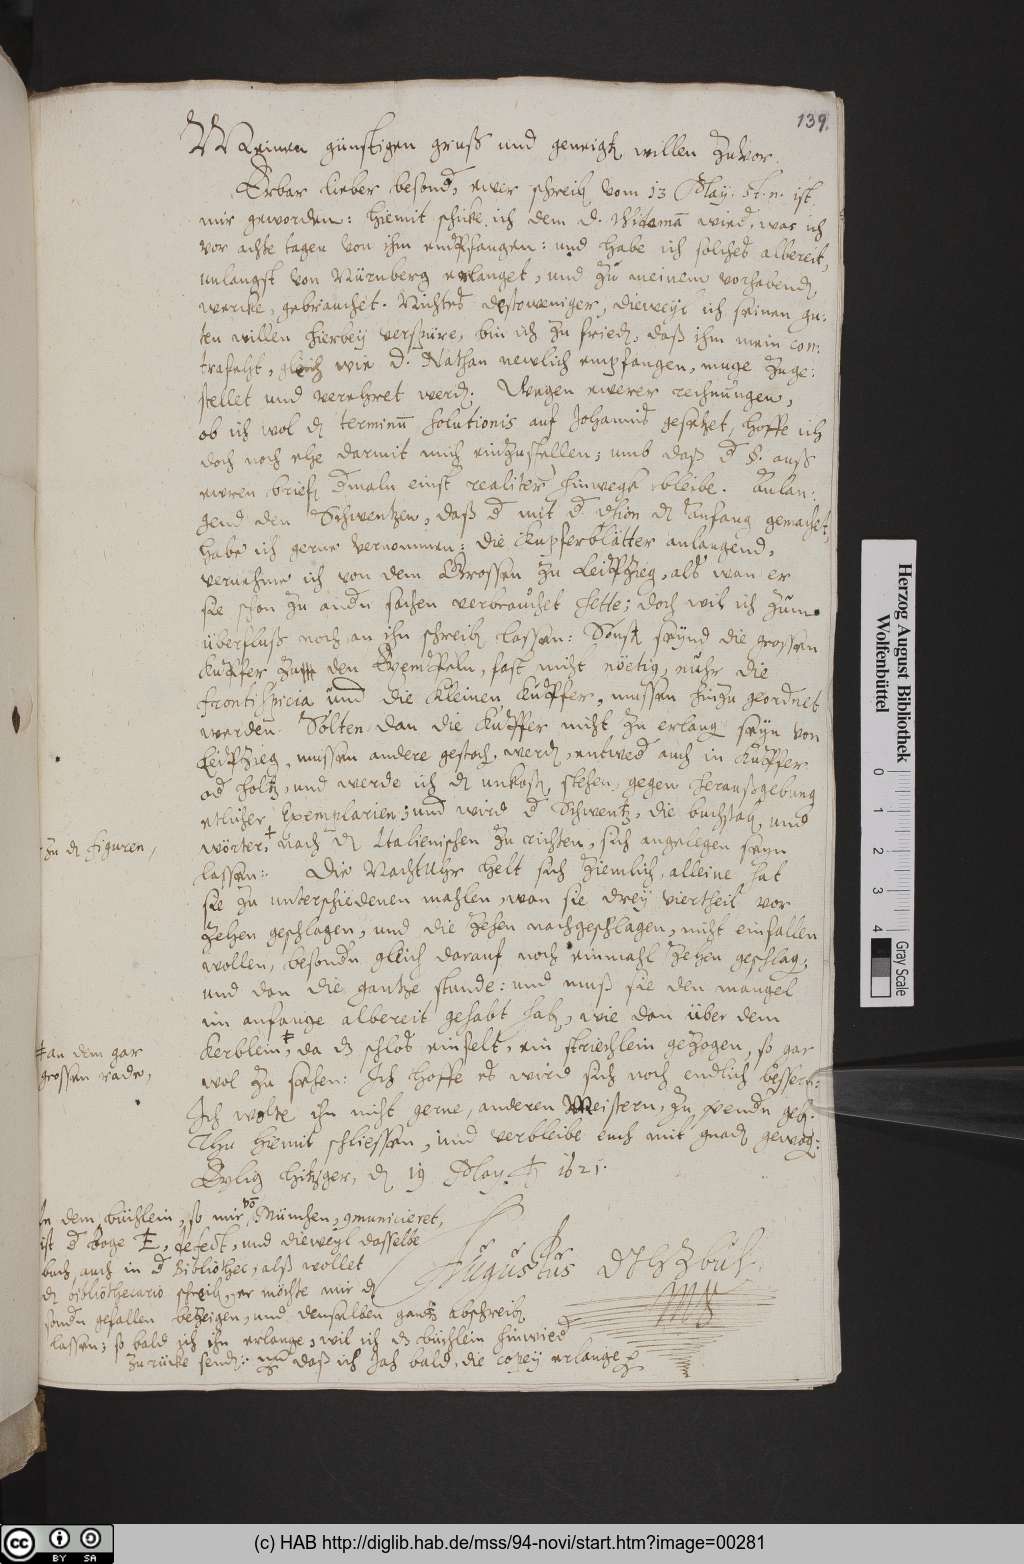 139.
Meinen günstigen gruß und geneigten willen zuvor.
Erbar lieber besond, ewer schreib vom 13 May. st. n. ist
mir geworden: hiemit schicke ich dem d. Widemā wied, was ich
vor achte tagen von ihm entpfangen: und habe ich solches albereit,
unlangst von Nürnberg erlanget, und zu meinem vorhabend
wercke, gebrauchet. Nichtes destoweniger, dieweyl ich seinen gu:
ten willen hierbey verspüre, bin ich zu fried, daß ihm mein con:
trafeyt, gleich wie d. Nathan newlich empfangen, muge zuge:
stellet und verehret werd. Wegen ewerer rechnungen,
ob ich wol d terminū solutionis auf Johannis gesetzet, hoffe ich
doch noch ehe darmit mich einzustellen; umb daß d auß
ewren brief dmaln einst realiter hinwegk bleibe. Anlan:
gend den Schwentzen, daß d mit d den anfang gemachet,
habe ich gerne vernommen: die Kupferblätter anlangend,
vernehme ich von dem Grossen zu Leipzieg, als wan er
sie schon zu andn sachen verbrauchet hette; doch wil ich zum
überfluß noch an ihn schreib lassen: Sonst seynd die grossen
Kupffer zu den Exempeln, fast nicht nöetig, nuhr die
frontispicia und die Kleinen Kupffer, mussen hinzu geordnet
werden. Solten dan die Kupffer nicht zu erlang seyn von
Leipzieg, mussen andere gestoch werd, entwed auch in Kupffer
od holtz, und werde ich d unkost stehen, gegen heraußgebung
etlicher Exemplarien; und wird d Schwentz, die buchstab, und
wörter, + nach d Italienischen zu richten, sich angelegen seyn
+ zu d figuren,
lassen: Die Nachtuhr helt sich ziemlich, alleine hat
sie zu unterschiedenen mahlen, wan sie drey viertheil vor
zehen geschlagen, und die zehen nachgeschlagen, nicht einfallen
wollen, besondn gleich darauf noch einmahl zehen geschlag;
und dan die gantze stunde: und muß sie den mangel
im anfange albereit gehabt hab, wie dan über dem
Kerblein, ‡ da ds schlos einfelt, ein striechlein gezogen, so gar
‡ an dem gar
grossen rade,
wol zu sehen: Ich hoffe es wird sich noch endlich bessern:
Ich wolte ihn nicht gerne, anderen Meistern, zu geb:
Thu hiemit schliessen, und verbleibe euch mit gnad gewog:
Eylig hitzger, d 19 May 1625.
In dem büchlein, so mir vō München, gmunicieret,
ist d boge E, defect, und dieweyl dasselbe
buch, auch in d Bibliothec, alß wollet
d bibliothecario schreib, er möchte mir d
sondn gefallen bezeigen, und denselben gantz abschreib
lassen; so bald ich ihn erlange, wil ich ds büchlein hinwied
zurücke send: und daß ich Jah bald, die copey erlange
Augustus
Herzog August Bibliothek
Wolfenbüttel
0 1 2 3 4
Gray Scale
CC BY SA
(c) HAB http://diglib.hab.de/mss/94-novi/start.htm?image=00281